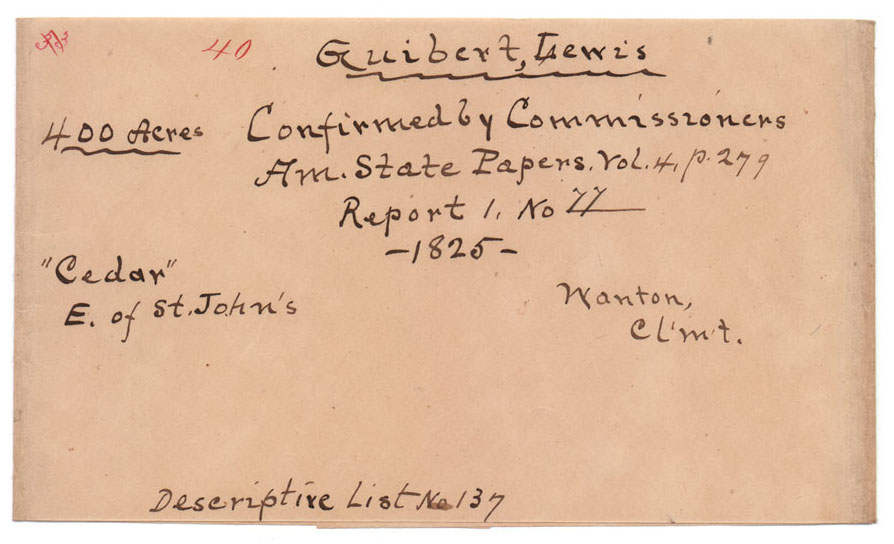 40
Guibert, Lewis
400 Acres Confirmed by Commissioners
Am. State Papers. Vol. 4. p. 279
Report 1. No 77
-1825-
"Cedar"
E. of St. John's
Wanton,
Cl'm't.
Descriptive List No 137